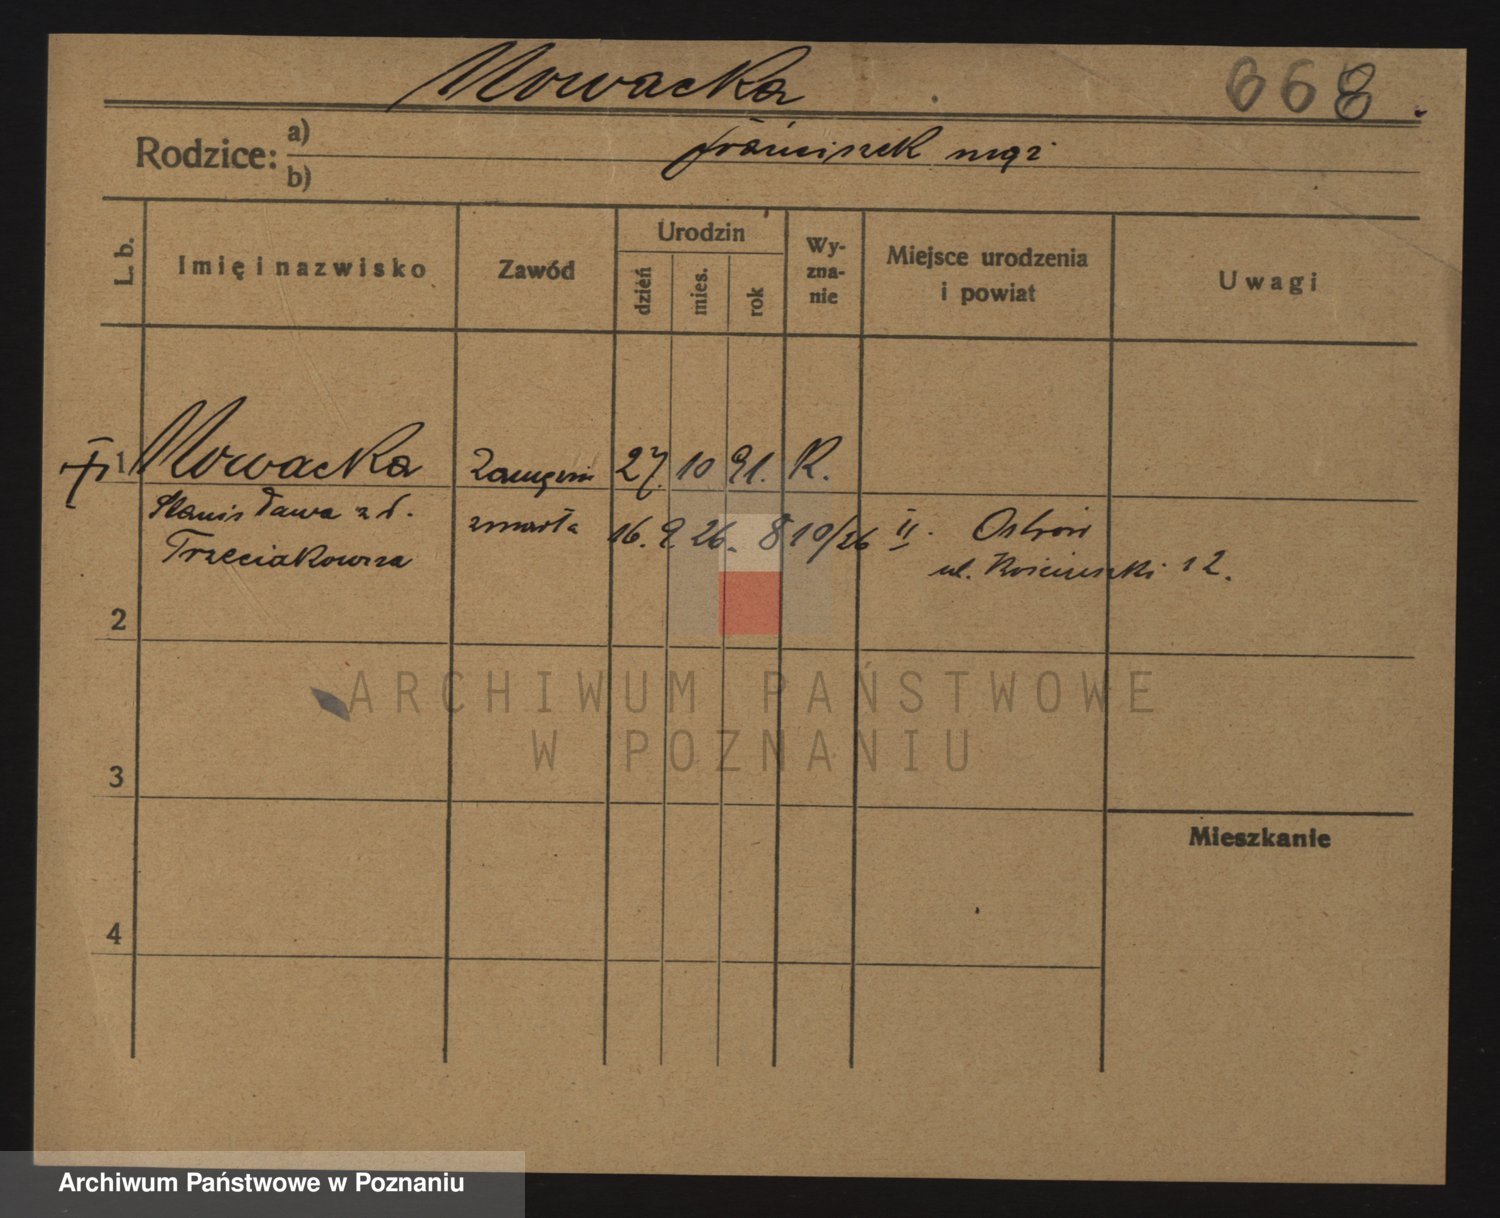 Nowacka 668.
Rodzice: a) Franciszek mąż
b)
L. b. Imię i nazwisko Zawód Urodzin dzień mies. rok Wy-zna-nie Miejsce urodzenia i powiat Uwagi
1 Nowacka 27. 10 91. R.
Stanisława z d. zmarła 16. 9. 26. 8 10/26 II. Ostrów
Trzeciakowska ul. Kościuszki 12.
2
ARCHIWUM PAŃSTWOWE
W POZNANIU
3
Mieszkanie
4
Archiwum Państwowe w Poznaniu